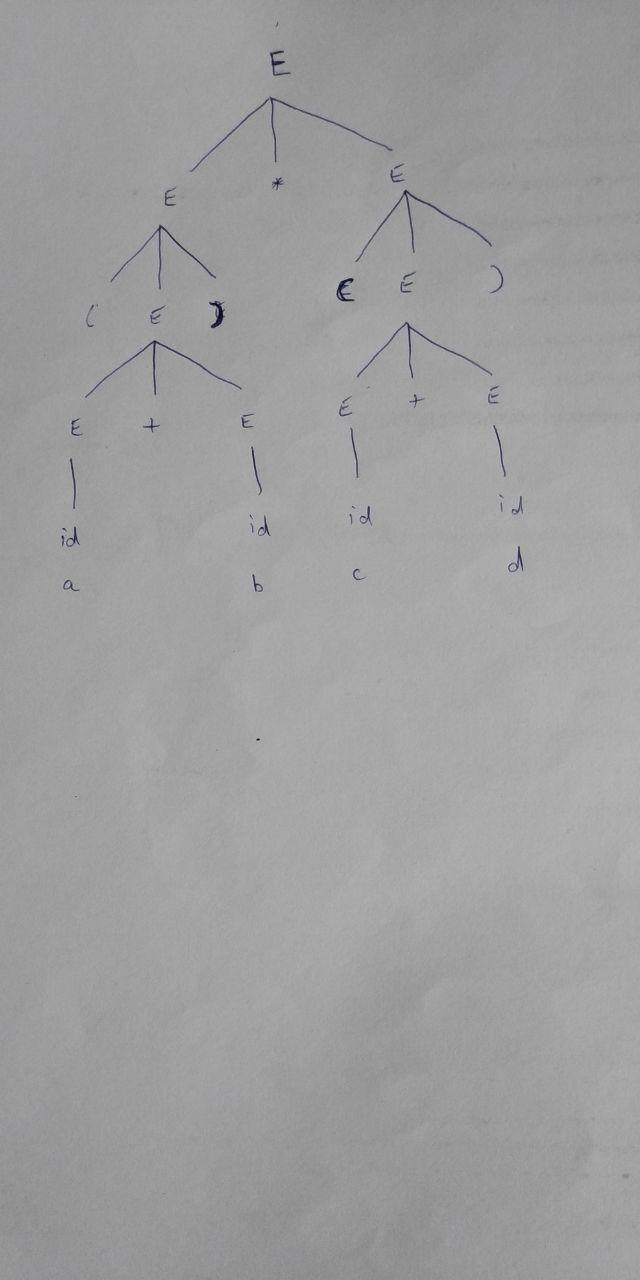 E
E * E
( E ) ( E )
E + E E + E
id id id id
a b c d